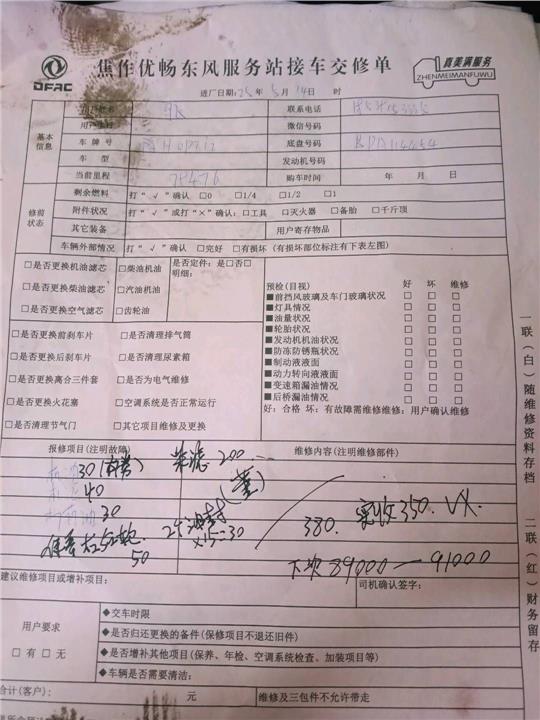 DFAC
焦作优畅东风服务站接车交修单
真美满服务
ZHENMEIMANFUWU
进厂日期:25年5月14日 时
基本信息
联系电话
微信号码
车牌号
底盘号码
车型
发动机号码
当前里程
购车时间 年 月 日
修前状态
剩余燃料 打“√”确认 □0 □1/4 □1/2 □1
附件状况 打“√”或打“×”确认:□工具 □灭火器 □备胎 □千斤顶
其它装备 用户寄存物品
车辆外部情况 打“√”确认 □完好 □有损坏(有损坏部位标注有下表左图)
□是否更换机油滤芯 □柴油机油
□是否更换柴油滤芯 □汽油机油
□是否更换空气滤芯 □齿轮油
是否定件:是□否□
明细:
□是否更换前刹车片 □是否清理排气筒
□是否更换后刹车片 □是否清理尿素箱
□是否更换离合三件套 □是否为电气维修
□是否更换火花塞 □空调系统是否正常运行
□是否清理节气门 □其它项目维修及更换
预检(目视) 好 坏 维修
■前挡风玻璃及车门玻璃状况 □ □ □
■灯具情况 □ □ □
■油量状况 □ □ □
■轮胎状况 □ □ □
■发动机机油状况 □ □ □
■防冻防锈瓶状况 □ □ □
■制动液液面 □ □ □
■动力转向液液面 □ □ □
■变速箱漏油情况 □ □ □
■后桥漏油情况 □ □ □
好:合格 坏:有故障需维修维修:用户确认维修
报修项目(注明故障) 维修内容(注明维修部件)
30
柴滤200
40
30
50
2个油封
×15=30
380.
实收350.
下次89000—91000
建议维修项目或增补项目:
司机确认签字:
用户要求
□有 □无
◆交车时限
◆是否归还更换的备件(保修项目不退还旧件)
◆是否增补其他项目(保养、年检、空调系统检查、加装项目等)
◆车辆是否需要清洁:
合计(客户): 元
维修及三包件不允许带走
一联(白)随维修资料存档
二联(红)财务留存